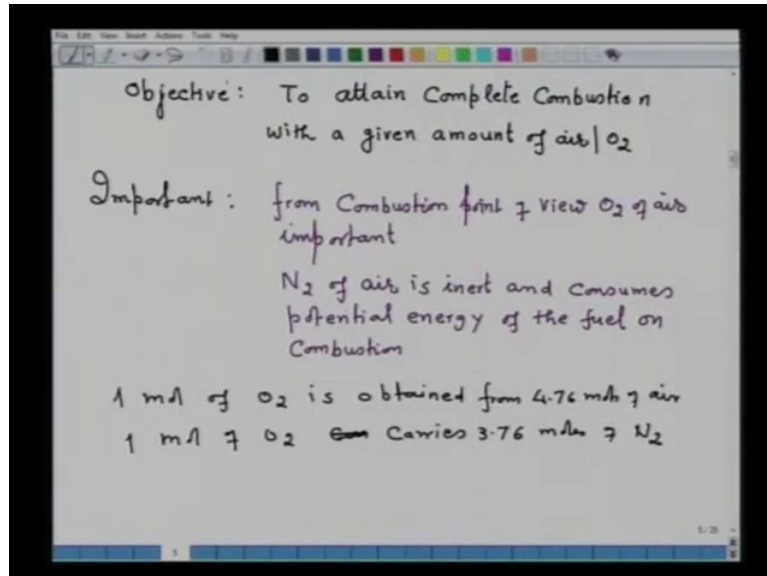 File Edit View Insert Actions Tools Help
Objective: To attain Complete Combustion
with a given amount of air|O2
Important: from Combustion point of view O2 of air
important
N2 of air is inert and Consumes
potential energy of the fuel on
Combustion
1 mol of O2 is obtained from 4.76 mols of air
1 mol of O2 Carries 3.76 moles of N2
5/25
5